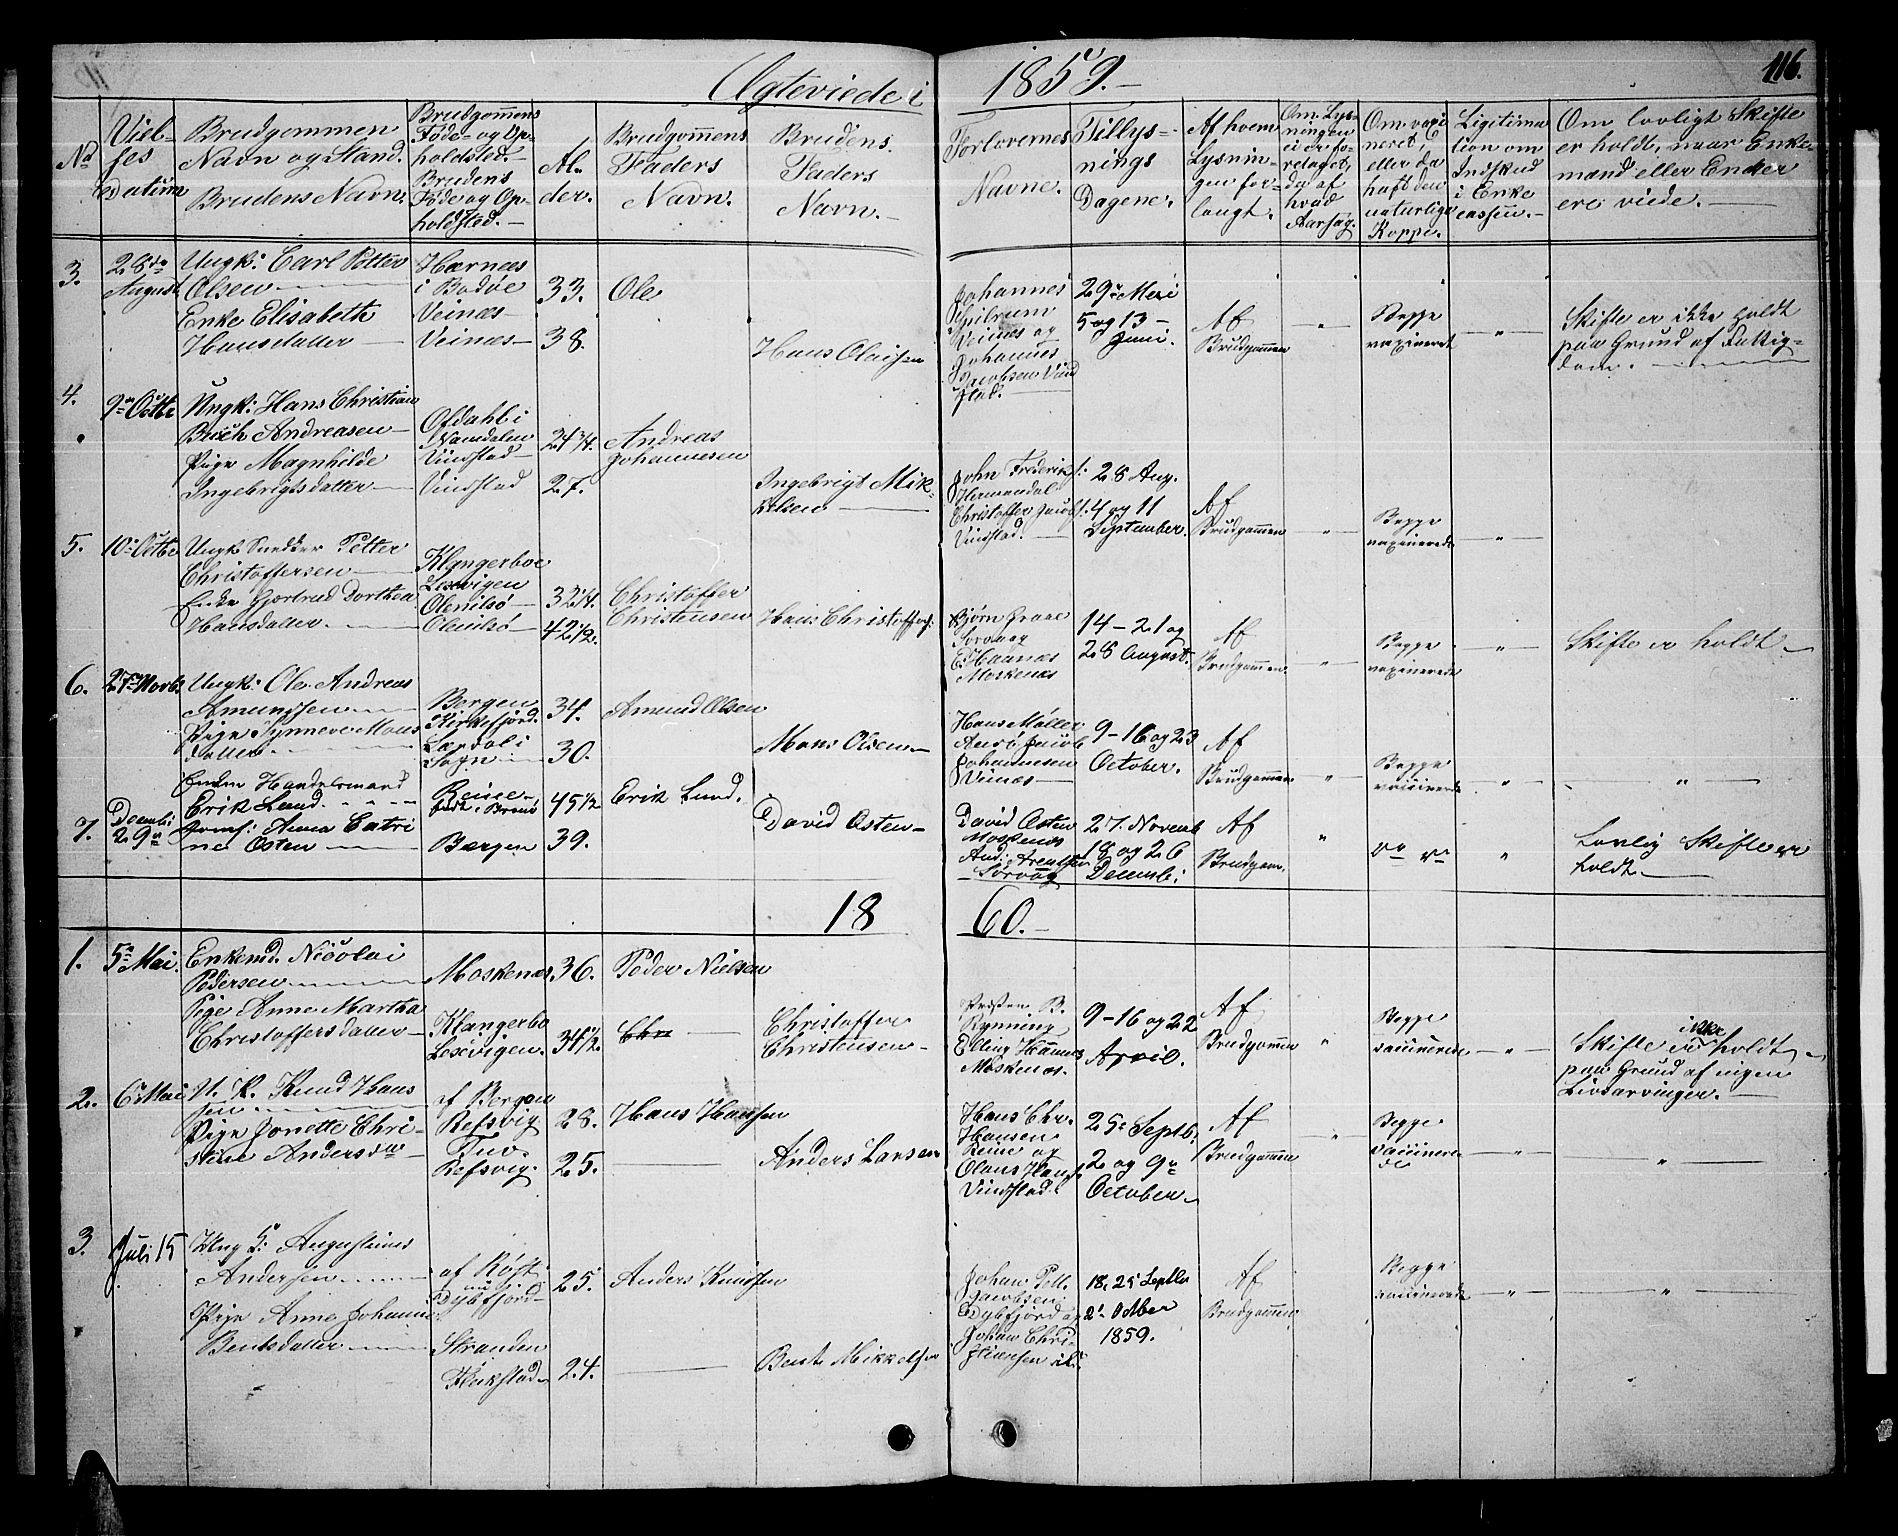 Ægteviede i 1859.-
116.
No
Viel-
ses
Datum
Brudgommen
Navn og Stand.
Brudens Navn.
Brudgom̄ens
Føde- og Op-
holdsted.-
Brudens
Føde og Op-
holdsted.-
Al-
der.
Brudgom̄ens
Faders
Navn.
Brudens
Faders
Navn.-
Forlovernes
Navne.
Tillys-
nings
Dagene.
Af hvem
Lysnin-
gen for-
langt.
Om Lys-
ningen
ei er fo-
retaget,
da af
hvad
Aarsag.
Om vaxi
neret,
eller da
haft den
naturlige
Koppe.
Ligitima
tion om
Indskud
i Enke
cassen.-
Om lovligt Skifte
er holdt, naar Enke-
mand eller Enker
ere viede.-
3.
28de
August
Ungk: Carl Petter
Olsen
Enke Elisabeth
Hansdatter
Hærnæs
i Bodøe
Veinæs
Veinæs
33.
38.
Ole
Hans Olaisen
Johannes
Spilrum
Veinæs og
Johannes
Jacobsen Vind
stad.
29de Mai
5 og 13-
Juni.
Af
Brudgommen
Begge
vaxineret
Skifte er ikke holdt
paa Grund af Fattig-
dom.
4.
9de Octbr
Ungk: Hans Christian
Buch Andreasen
Pige Magnhilde
Ingebrigtsdatter
Ofdahl i
Namdalen
Vindstad
Vindstad
24 3/4.
27.
Andreas
Johannesen
Ingebrigt Mik-
kelsen
John Frederiks:
Hermandal
Christoffer Jacobs:
Vindstad.
28 Aug.
4 og 11
September.
Af
Brudgommen
Begge
vaxinerede
5.
10de Octbr
Ungk Snedker Petter
Christoffersen
Enke Gjertrud Dorthea
Hansdatter
Klyngerboe
Lesevigen
Olenilsø
Olenilsø
32 1/4.
42 1/2.
Christoffer
Christensen
Hans Christoffers.
Bjørn Graae
Sorvaag
E. Hannæs
Moskenæs
14-21 og
28 August.
Af
Brudgommen
Begge
vaxinerede
Skifte er holdt
6.
27de Novbr
Ungk: Ole Andreas
Amundsen
Pige Synneve Mons
datter
Bergen
Kirkefjord.
Lærdal i
Sogn
34.
30.
Amund Olsen
Mons Olsen
Hans Møller
Johannesen
Veinæs
9-16 og 23
October.
Af
Brudgommen
Begge
vaccinerede
7.
Decembr
29de
Enkem Handelsmand
Erik Lund.
Jomf: Anna Catri
ne Osten
Reine
født i Brønø
Bergen
45 1/2
39.
Erik Lund.
David Osten
David Osten
Moskenæs
And: Arentsen
Sørvaag
27. Novemb
18 og 26
Decemb:
Af
Brudgom.
do do
Lovlig Skifte er
holdt.
18 60.-
1.
5de Mai.
Enkemd. Nicolai
Pedersen
Pige Anne Martha
Christoffersdatter
Moskenæs
Klangerbo
Lesevigen.
36.
34 1/2.
Peder Nielsen
Chri
Christoffer
Christensen
Præsten B.
Rynning
Elling Hannæs
Moskenæs.
9-16 og 22
April.
Af
Brudgommen
Begge
vaccinerede
Skifte er ikke holdt
paa Grund af ingen
Livsarvinger.
2.
6 Mai
U. K. Knud Hans
sen
Pige Jonette Chri-
stine Andersdtr
af Bergen
Refsvig
Tuv.
Refsvig.
28.
25.
Hans Hansen
Anders Larsen
Hans Chr.
Hansen
Reine og
Olaus Hans
Vindstad.
25de Septbr
2 og 9de
October
Af
Brudgommen
Begge
vaccinere
de
3.
Juli 15
Ung S: Augustinus
Andersen
Pige Anne Johanne
Bentsdatter
af Røst
nu
Dybfjord
Stranden
Flakstad
25
24.
Anders Knudsen
Bent Mikkelsen
Johan Pett.
Jacobsen
Dybfjord og
Johan Chri-
stiansen ibd.
18, 25 Septbr
2de Octber
1859.
Af
Brudgommen
Begge
vaccinerede